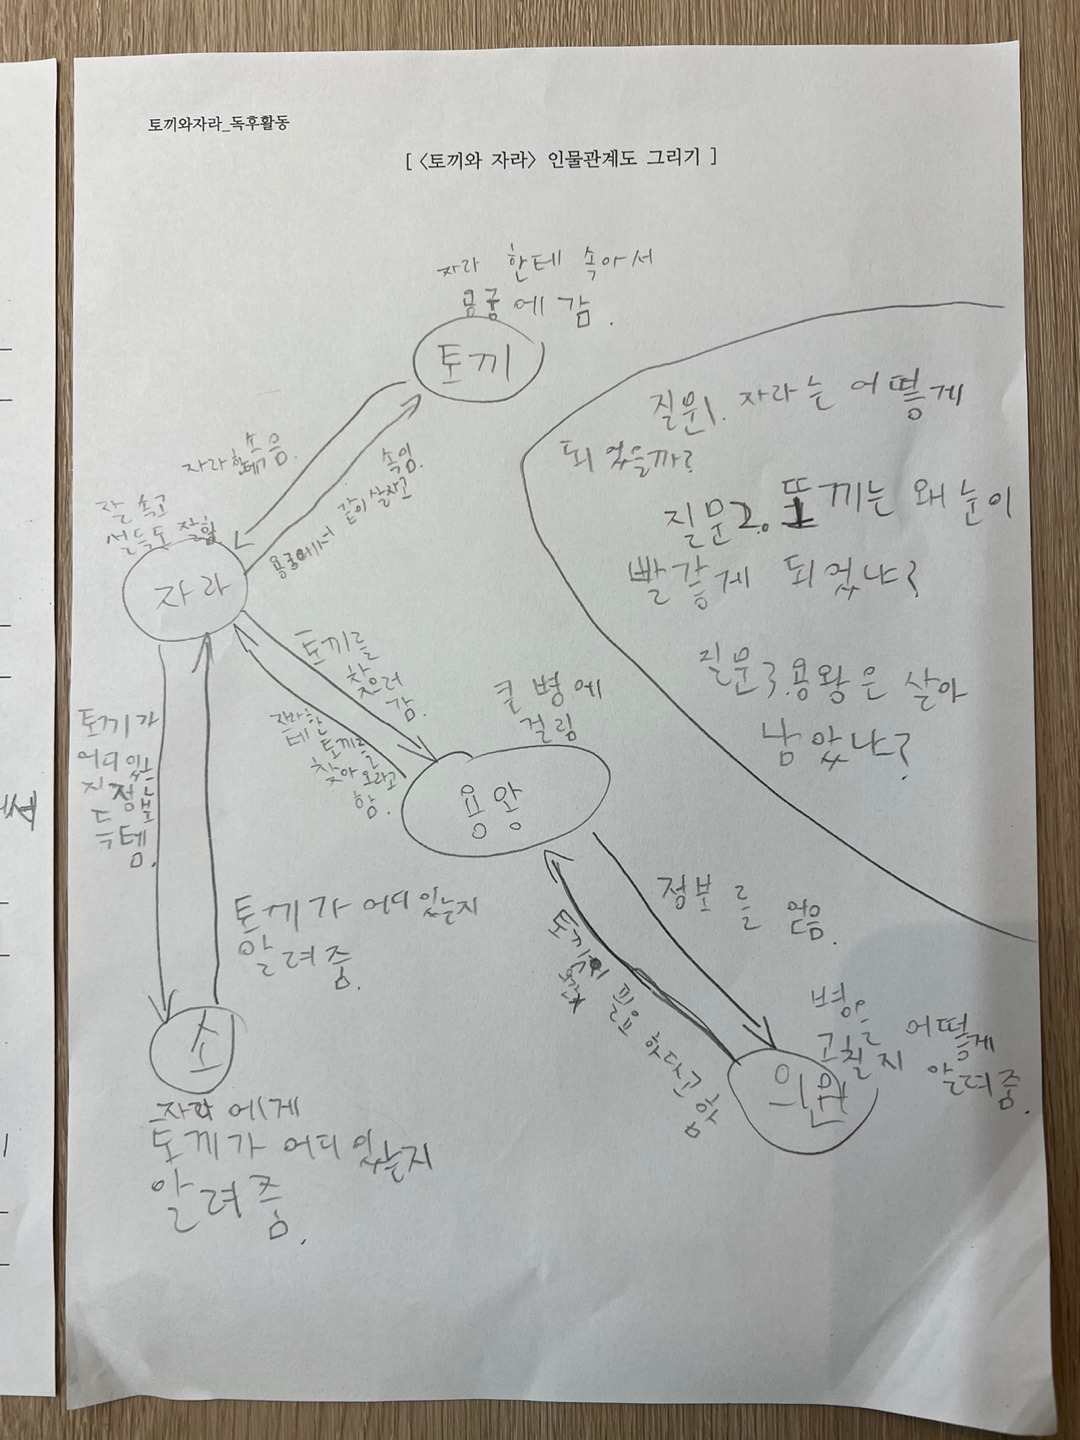 토끼와자라_독후활동
[ <토끼와 자라> 인물관계도 그리기 ]
자라 한테 속아서
용궁에 감.
토끼
자라한테 속음.
용궁에서 같이 살자고 속임.
잘 속고
설득도 잘함
자라
토끼를
찾으러
감.
자라한
테 토끼를
찾아 오라고
함.
큰 병에
걸림
용왕
토끼가
어디 있는
지 정보
득템.
토끼가 어디 있는지
알려줌.
소
자라 에게
토끼가 어디 있는지
알려줌.
정보를 얻음.
토끼의 간이 필요 하다고 함
병을
고칠지 어떻게
알려줌.
의원
질문1. 자라는 어떻게
되 었을까?
질문2. 토끼는 왜 눈이
빨갛게 되었냐?
질문3. 용왕은 살아
남았냐?